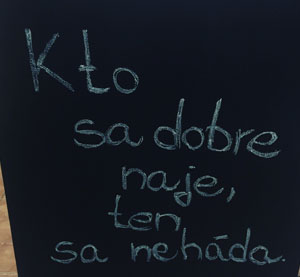 Kto
sa dobre
naje,
ten
sa neháda.